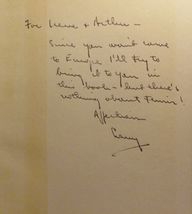 For Irene & Arthur —
Since you won't come
to Europe I'll try to
bring it to you in
this book — but there's
nothing about Paris!
Affection